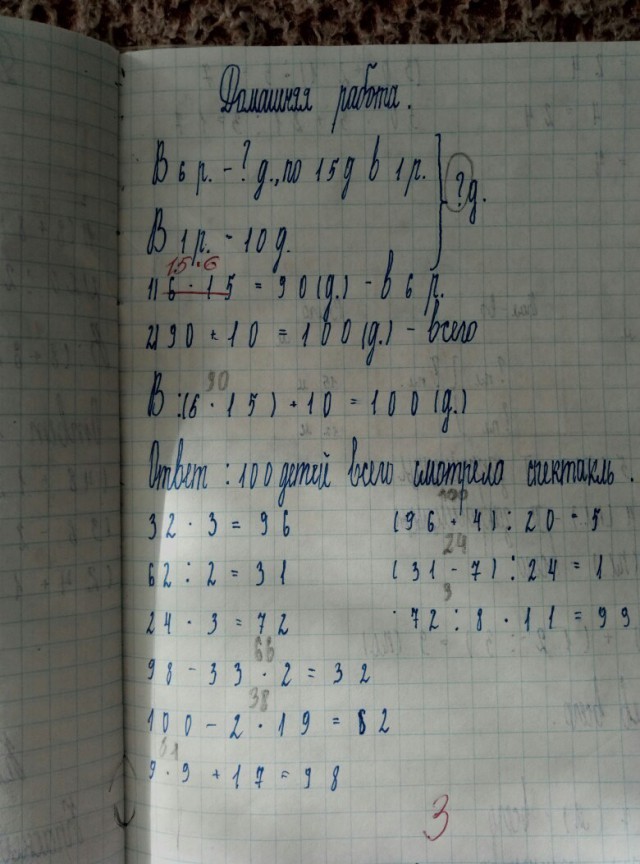 Домашняя работа.
В 6 р. - ? д., по 15 д в 1 р.
? д.
В 1 р. - 10 д.
15·6
1) 6 · 15 = 90 (д.) - в 6 р.
2) 90 + 10 = 100 (д.) - всего
90
В :(6 · 15) + 10 = 100 (д.)
Ответ : 100 детей всего смотрела спектакль.
100
32 · 3 = 96 (96 + 4) : 20 = 5
24
62 : 2 = 31 (31 - 7) : 24 = 1
9
24 · 3 = 72 72 : 8 · 11 = 99
66
98 - 33 · 2 = 32
38
100 - 2 · 19 = 62
81
9 · 9 + 17 = 98
3